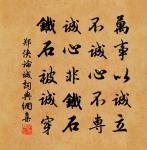 萬事以誠立
不誠心不專
誠心非鐵石
鐵石被誠穿
鄭俠論誠詞典網集